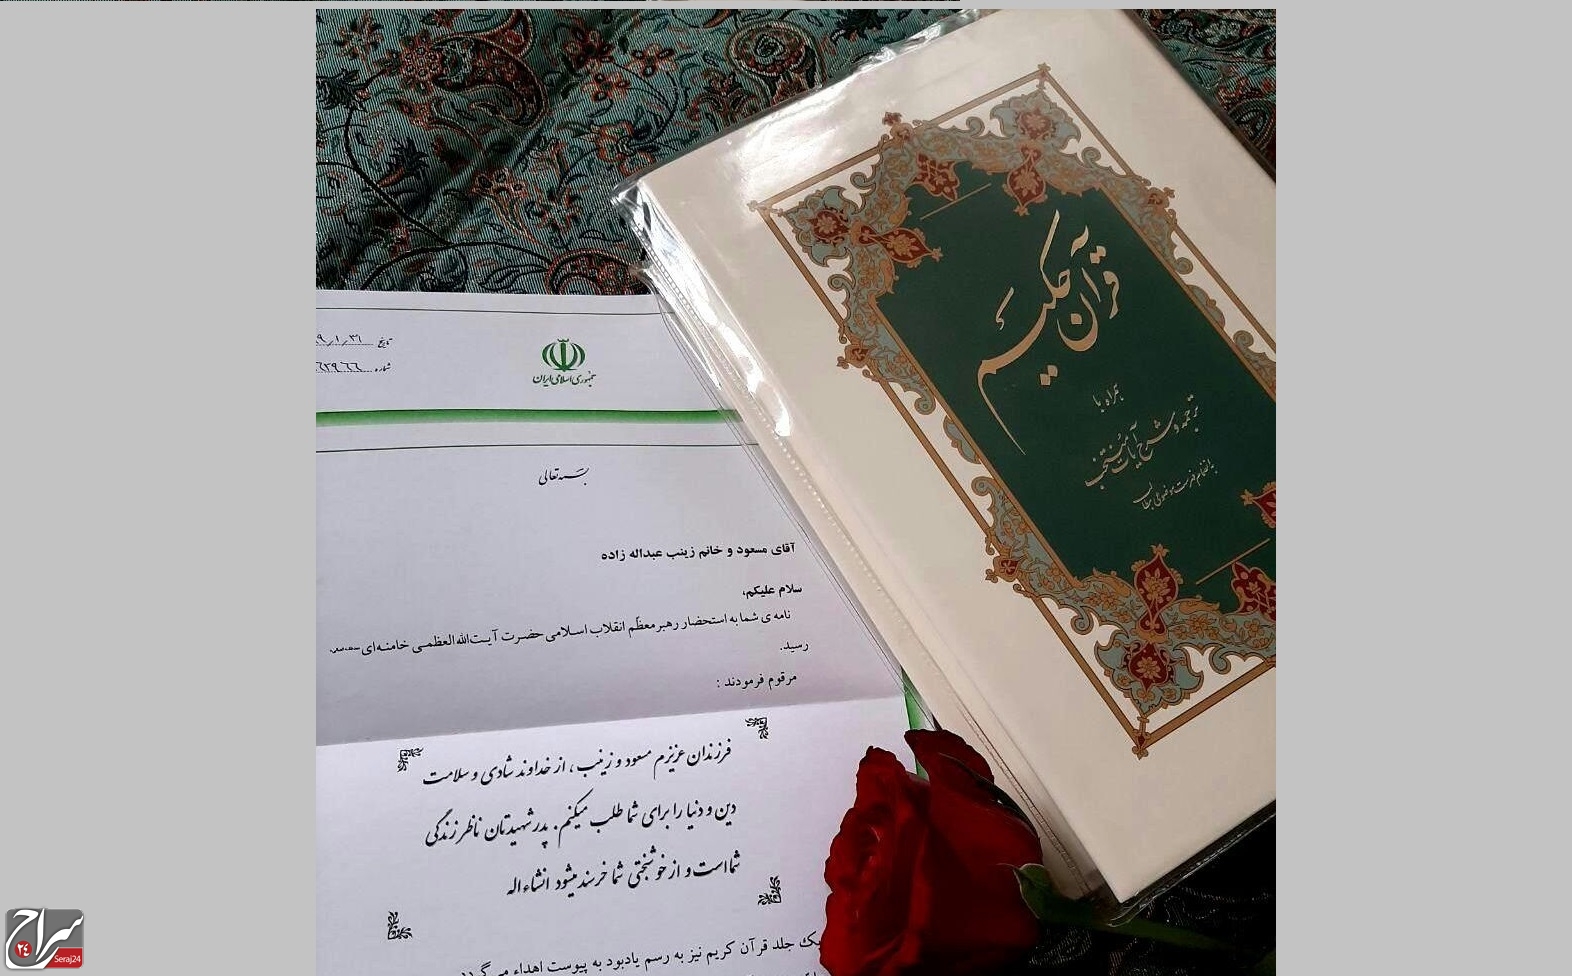 قرآن حکیم
همراه با
ترجمه و شرح آیات منتخب
به انضمام فهرست موضوعی مطالب
جمهوری اسلامی ایران
تاریخ ۹/۱/۳۱
شماره ۶۳۹۶۶
بسمه تعالی
آقای مسعود و خانم زینب عبداله زاده
سلام علیکم،
نامه ی شما به استحضار رهبر معظّم انقلاب اسلامی حضرت آیت‌الله العظمی خامنه‌ای
رسید.
مرقوم فرمودند :
فرزندان عزیزم مسعود و زینب، از خداوند شادی و سلامت
دین و دنیا را برای شما طلب میکنم. پدر شهیدتان ناظر زندگی
شما است و از خوشبختی شما خرسند میشود انشاءاله
یک جلد قرآن کریم نیز به رسم یادبود به پیوست اهداء می گردد
سراج
۲۴
Seraj24